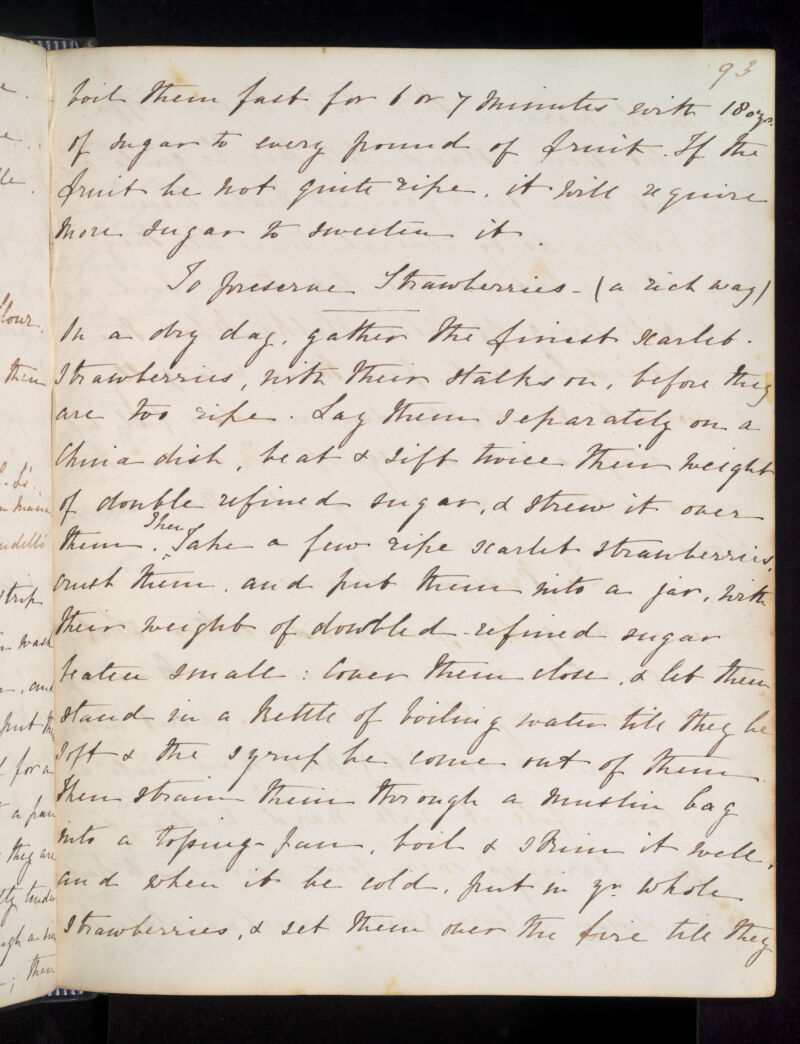 93
boil them fast for 6 or 7 minutes with 18 ozs.
of sugar to every pound of fruit. If the
fruit be not quite ripe, it will require
more sugar to sweeten it.
To preserve Strawberries - (a rich way)
On a dry day, gather the finest scarlet
strawberries, with their stalks on, before they
are too ripe. Lay them separately on a
China dish, beat & sift twice their weight
of double refined sugar, & strew it over
them. Then Take a few ripe scarlet strawberries,
crush them, and put them into a jar, with
their weight of doubled-refined sugar
beaten small: Cover them close, & let them
stand in a Kettle of boiling water till they be
soft & the syrup be come out of them.
Then strain them through a muslin bag
into a tossing-pan, boil & skim it well,
and when it be cold, put in yr. whole
strawberries, & set them over the fire till they
flour.
then
strip
wash
and
put the
for a
a pan
they are
tender
; then